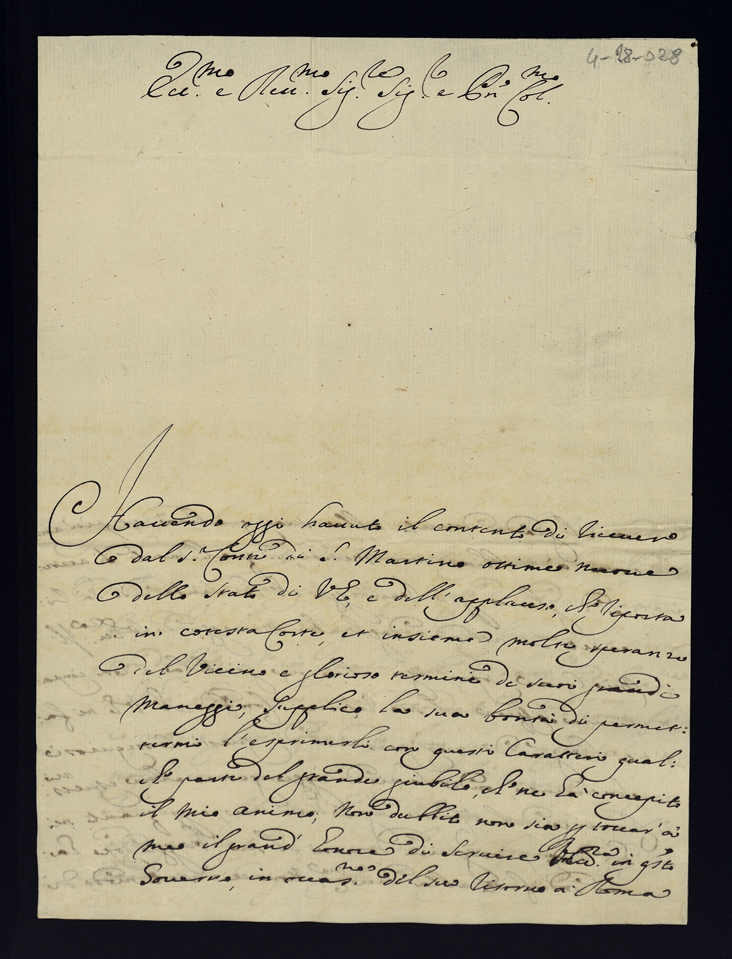 4-28-028
Ecc.mo e Reu.mo Sig.re Sig.r e Pn.e Col.mo
Hauendo oggi hauuto il contento di riceuere
dal S.r Conte di S. Martino ottime nuoue
dello stato di V.E., e dell'applauso, che riporta
in cotesta Corte, et insieme molte speranze
del vicino e glorioso termine de suoi grandi
Maneggi, supplico la sua bontà di permet:
termi l'esprimerli con questi Caratteri qual:
che parte del grande giubilo, che ne hà concepito
il mio animo, non dubbito non sia p toccar à
me il grand'honore di seruire in qsto
Gouerno, in occas.ne del suo ritorno à Roma